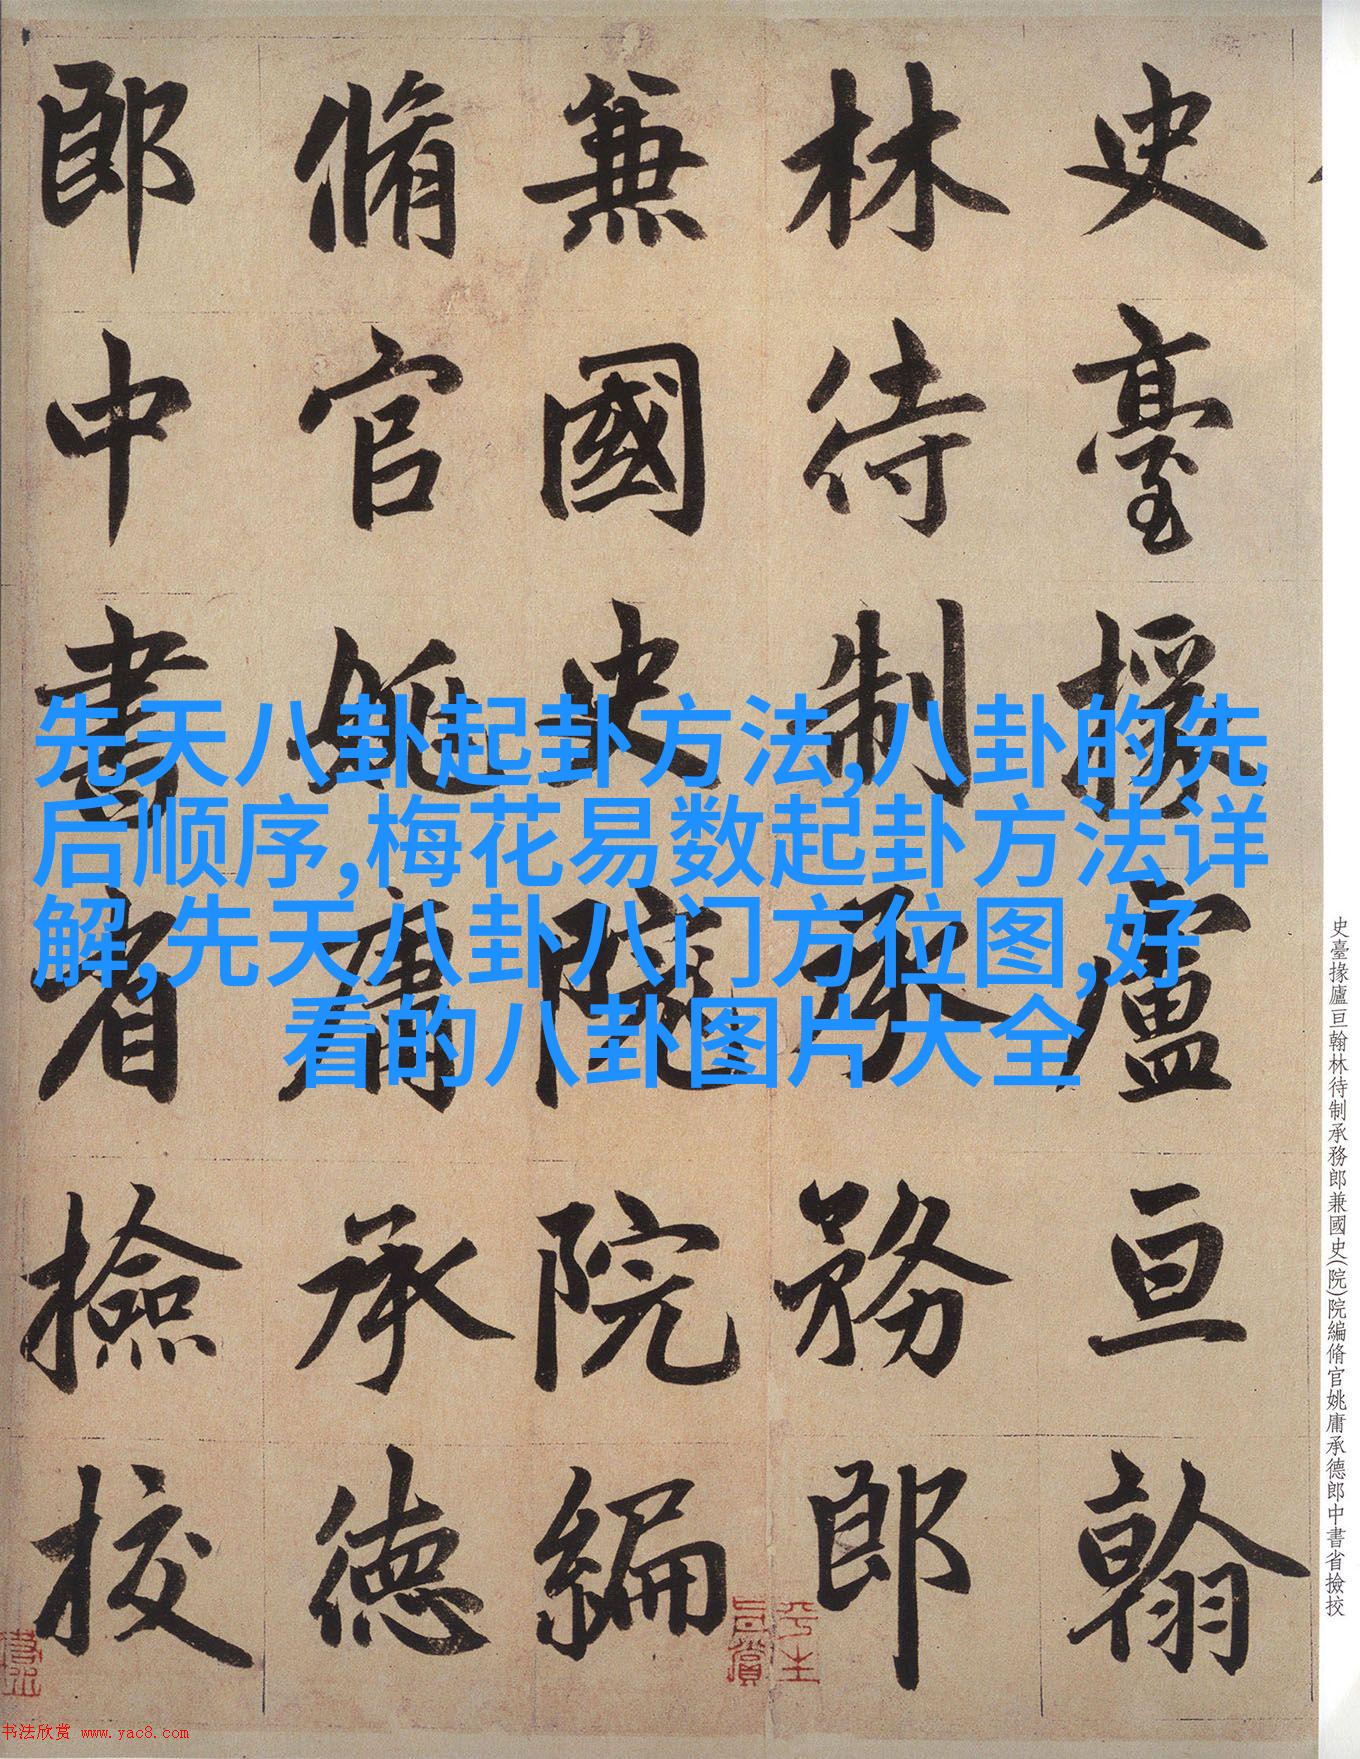 史臺掾廬亘翰
林待制承務郎
兼國史院院編
脩官姚庸承德
郎中書省撿挍
先天八卦起卦方法,八卦的先
后顺序,梅花易数起卦方法详
解,先天八卦八门方位图,好
看的八卦图片大全
史臺掾廬亘翰林待制承務郎兼國史(院)院編脩官姚庸承德郎中書省撿挍
书法欣赏 www.yac8.com